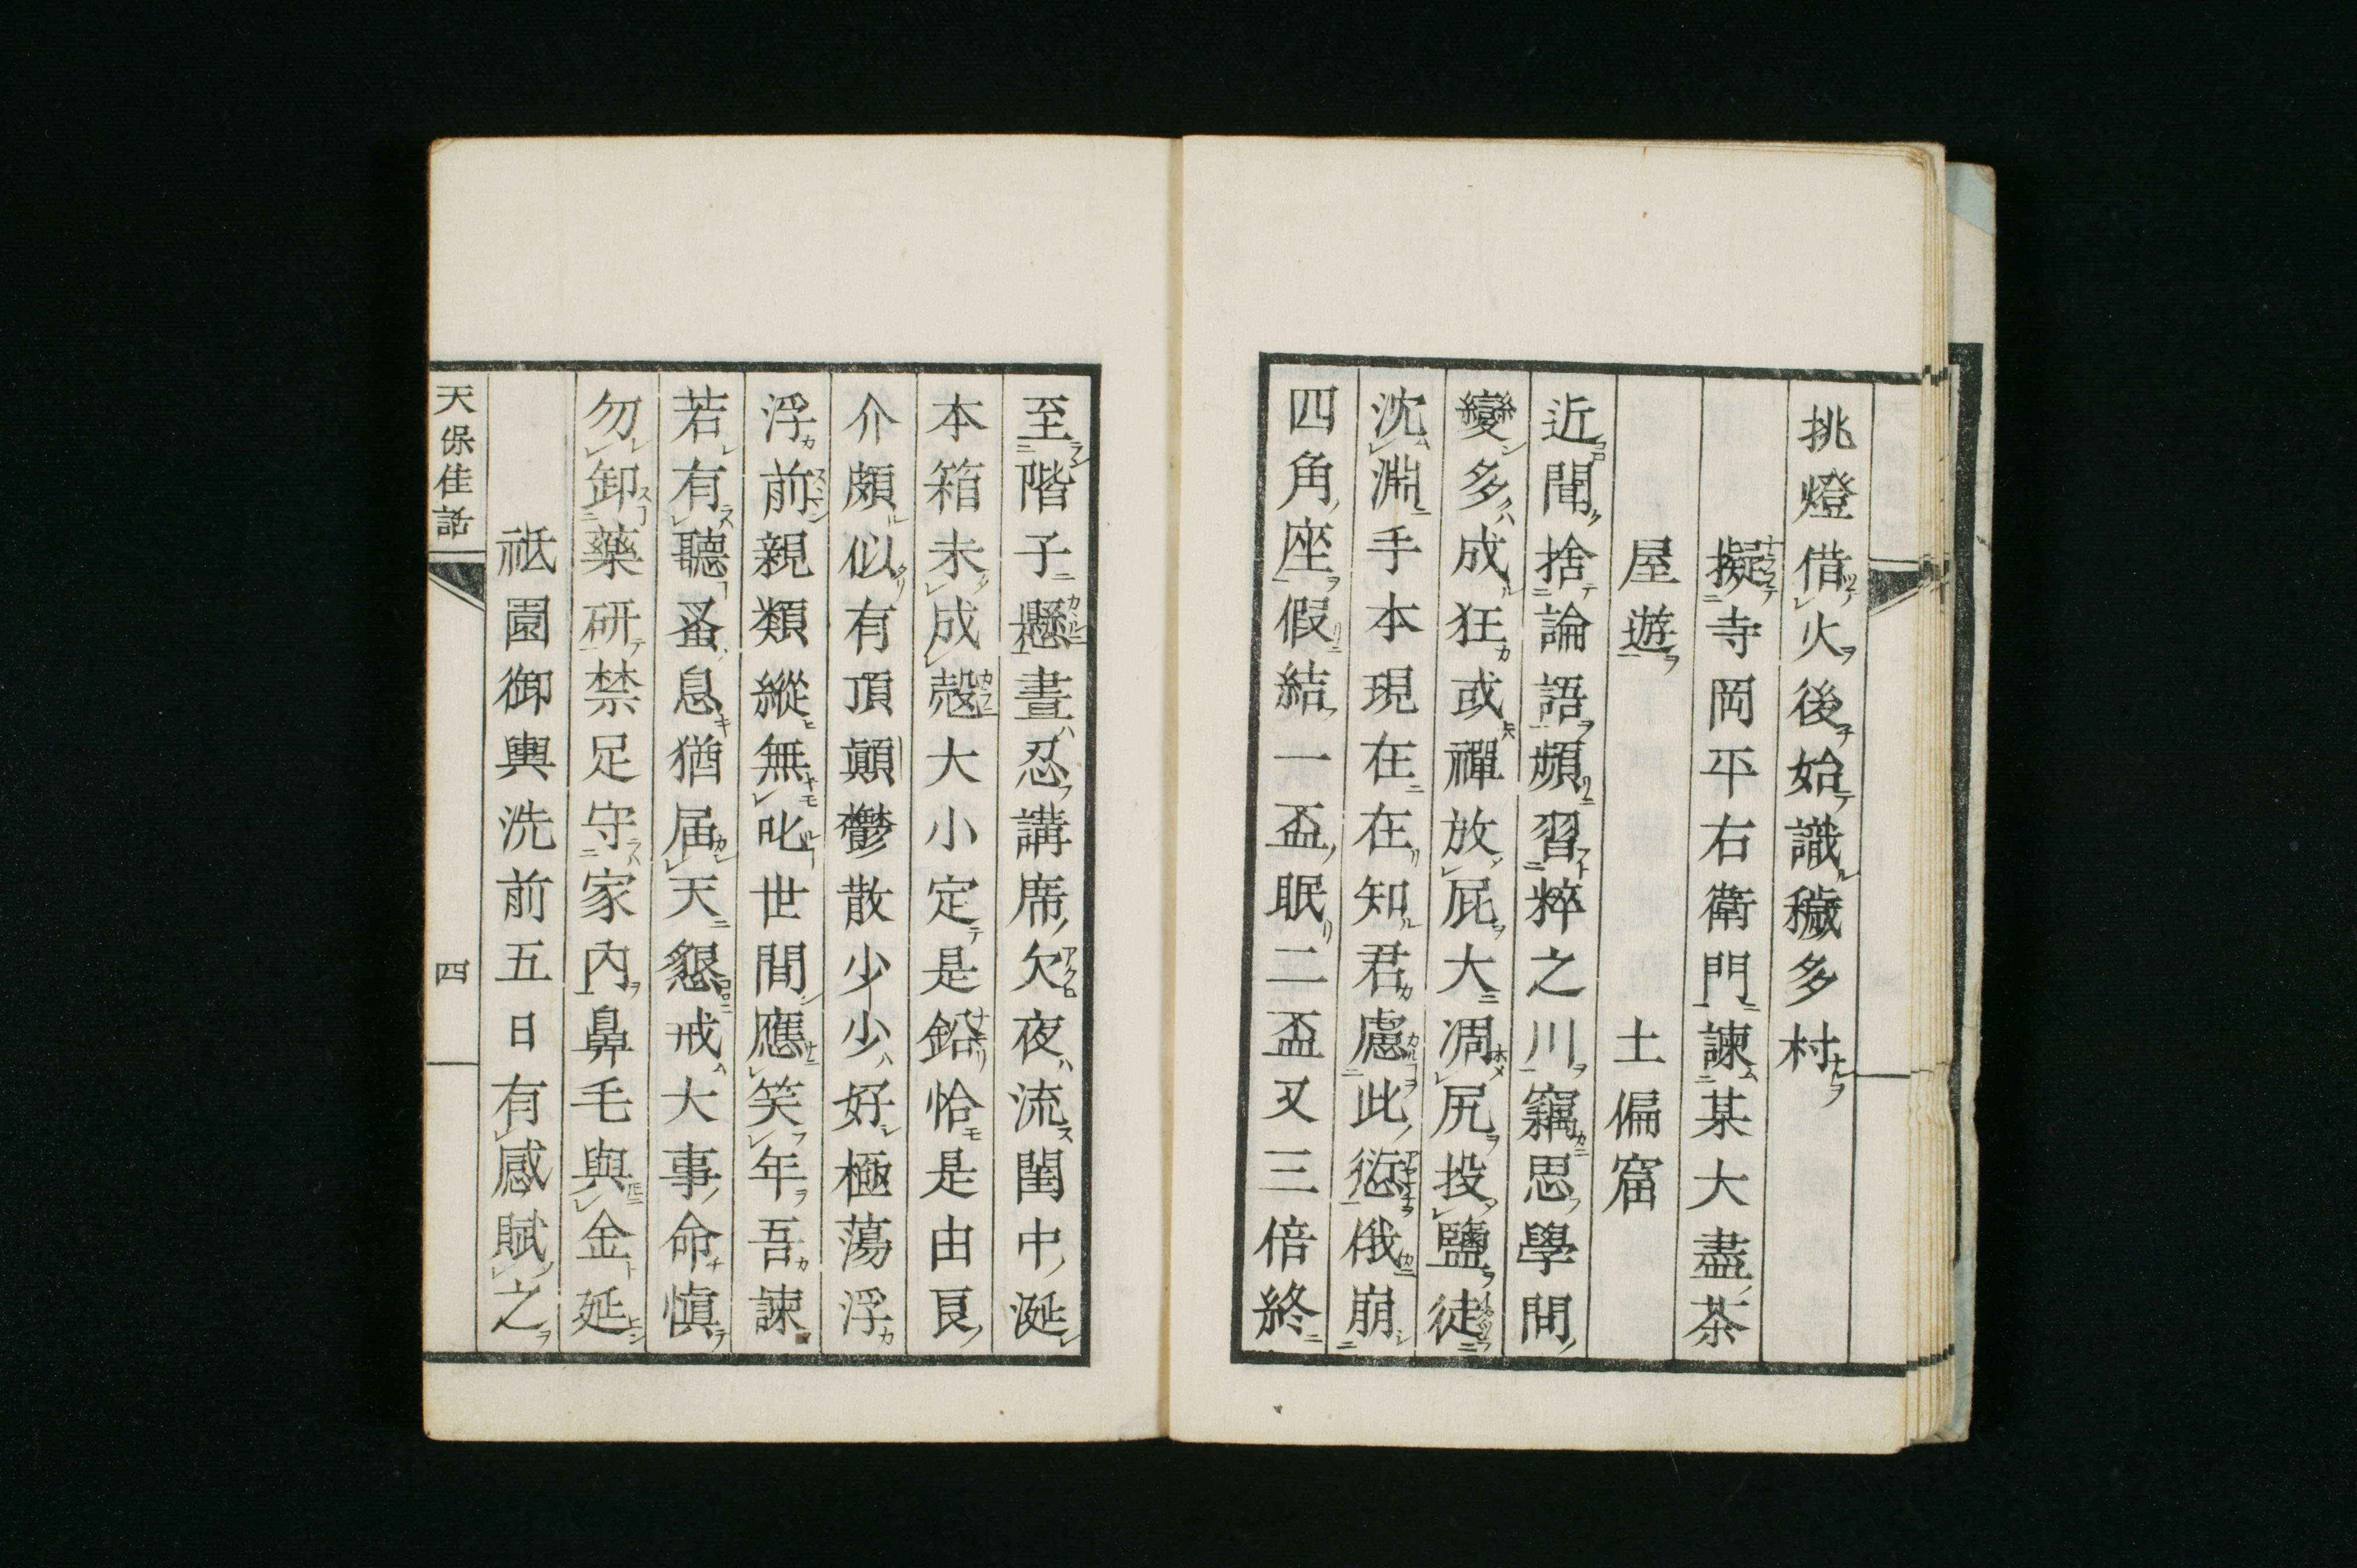 挑燈借火後始識穢多村
擬寺岡平右衛門諫某大盡茶
屋遊　土偏窟
近聞捨論語頻習粹之川竊思學間
變多成狂或禪放屁大凋尻投鹽徒
沈淵手本現在在知君慮此愆俄崩
四角座假結一盃眠二盃又三倍終
至階子懸晝忍講席欠夜流閨中涎
本箱未成殼大小定是鉛恰是由良
介頗似有頂顛鬱散少少好極蕩浮
浮前親類縱無叱世間應笑年吾諫
若有聽蚤息猶届天懇戒大事命愼
勿卸藥研禁足守家內鼻毛與金延
祗園御輿洗前五日有感賦之
天保佳話
四